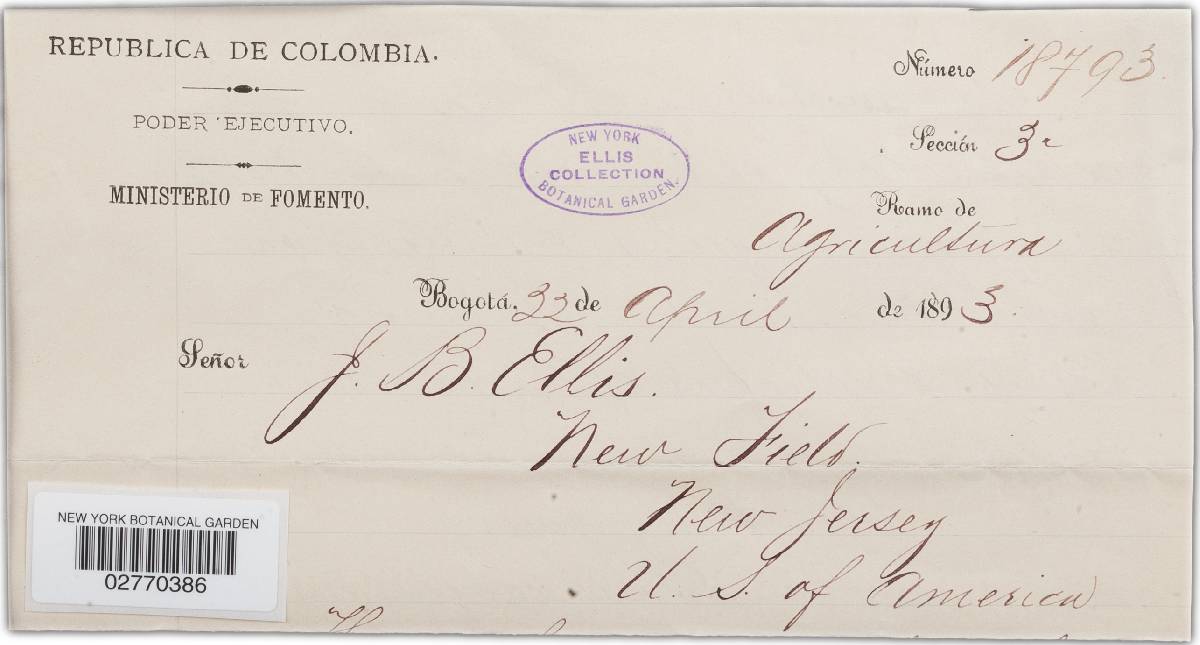 REPUBLICA DE COLOMBIA.
PODER EJECUTIVO.
MINISTERIO DE FOMENTO.
Número 18793.
Sección 3ª
Ramo de
Agricultura
NEW YORK
ELLIS
COLLECTION
BOTANICAL GARDEN.
Bogotá, 22 de April de 1893.
Señor J. B. Ellis.
New Field.
New Jersey
U. S. of America
NEW YORK BOTANICAL GARDEN
02770386